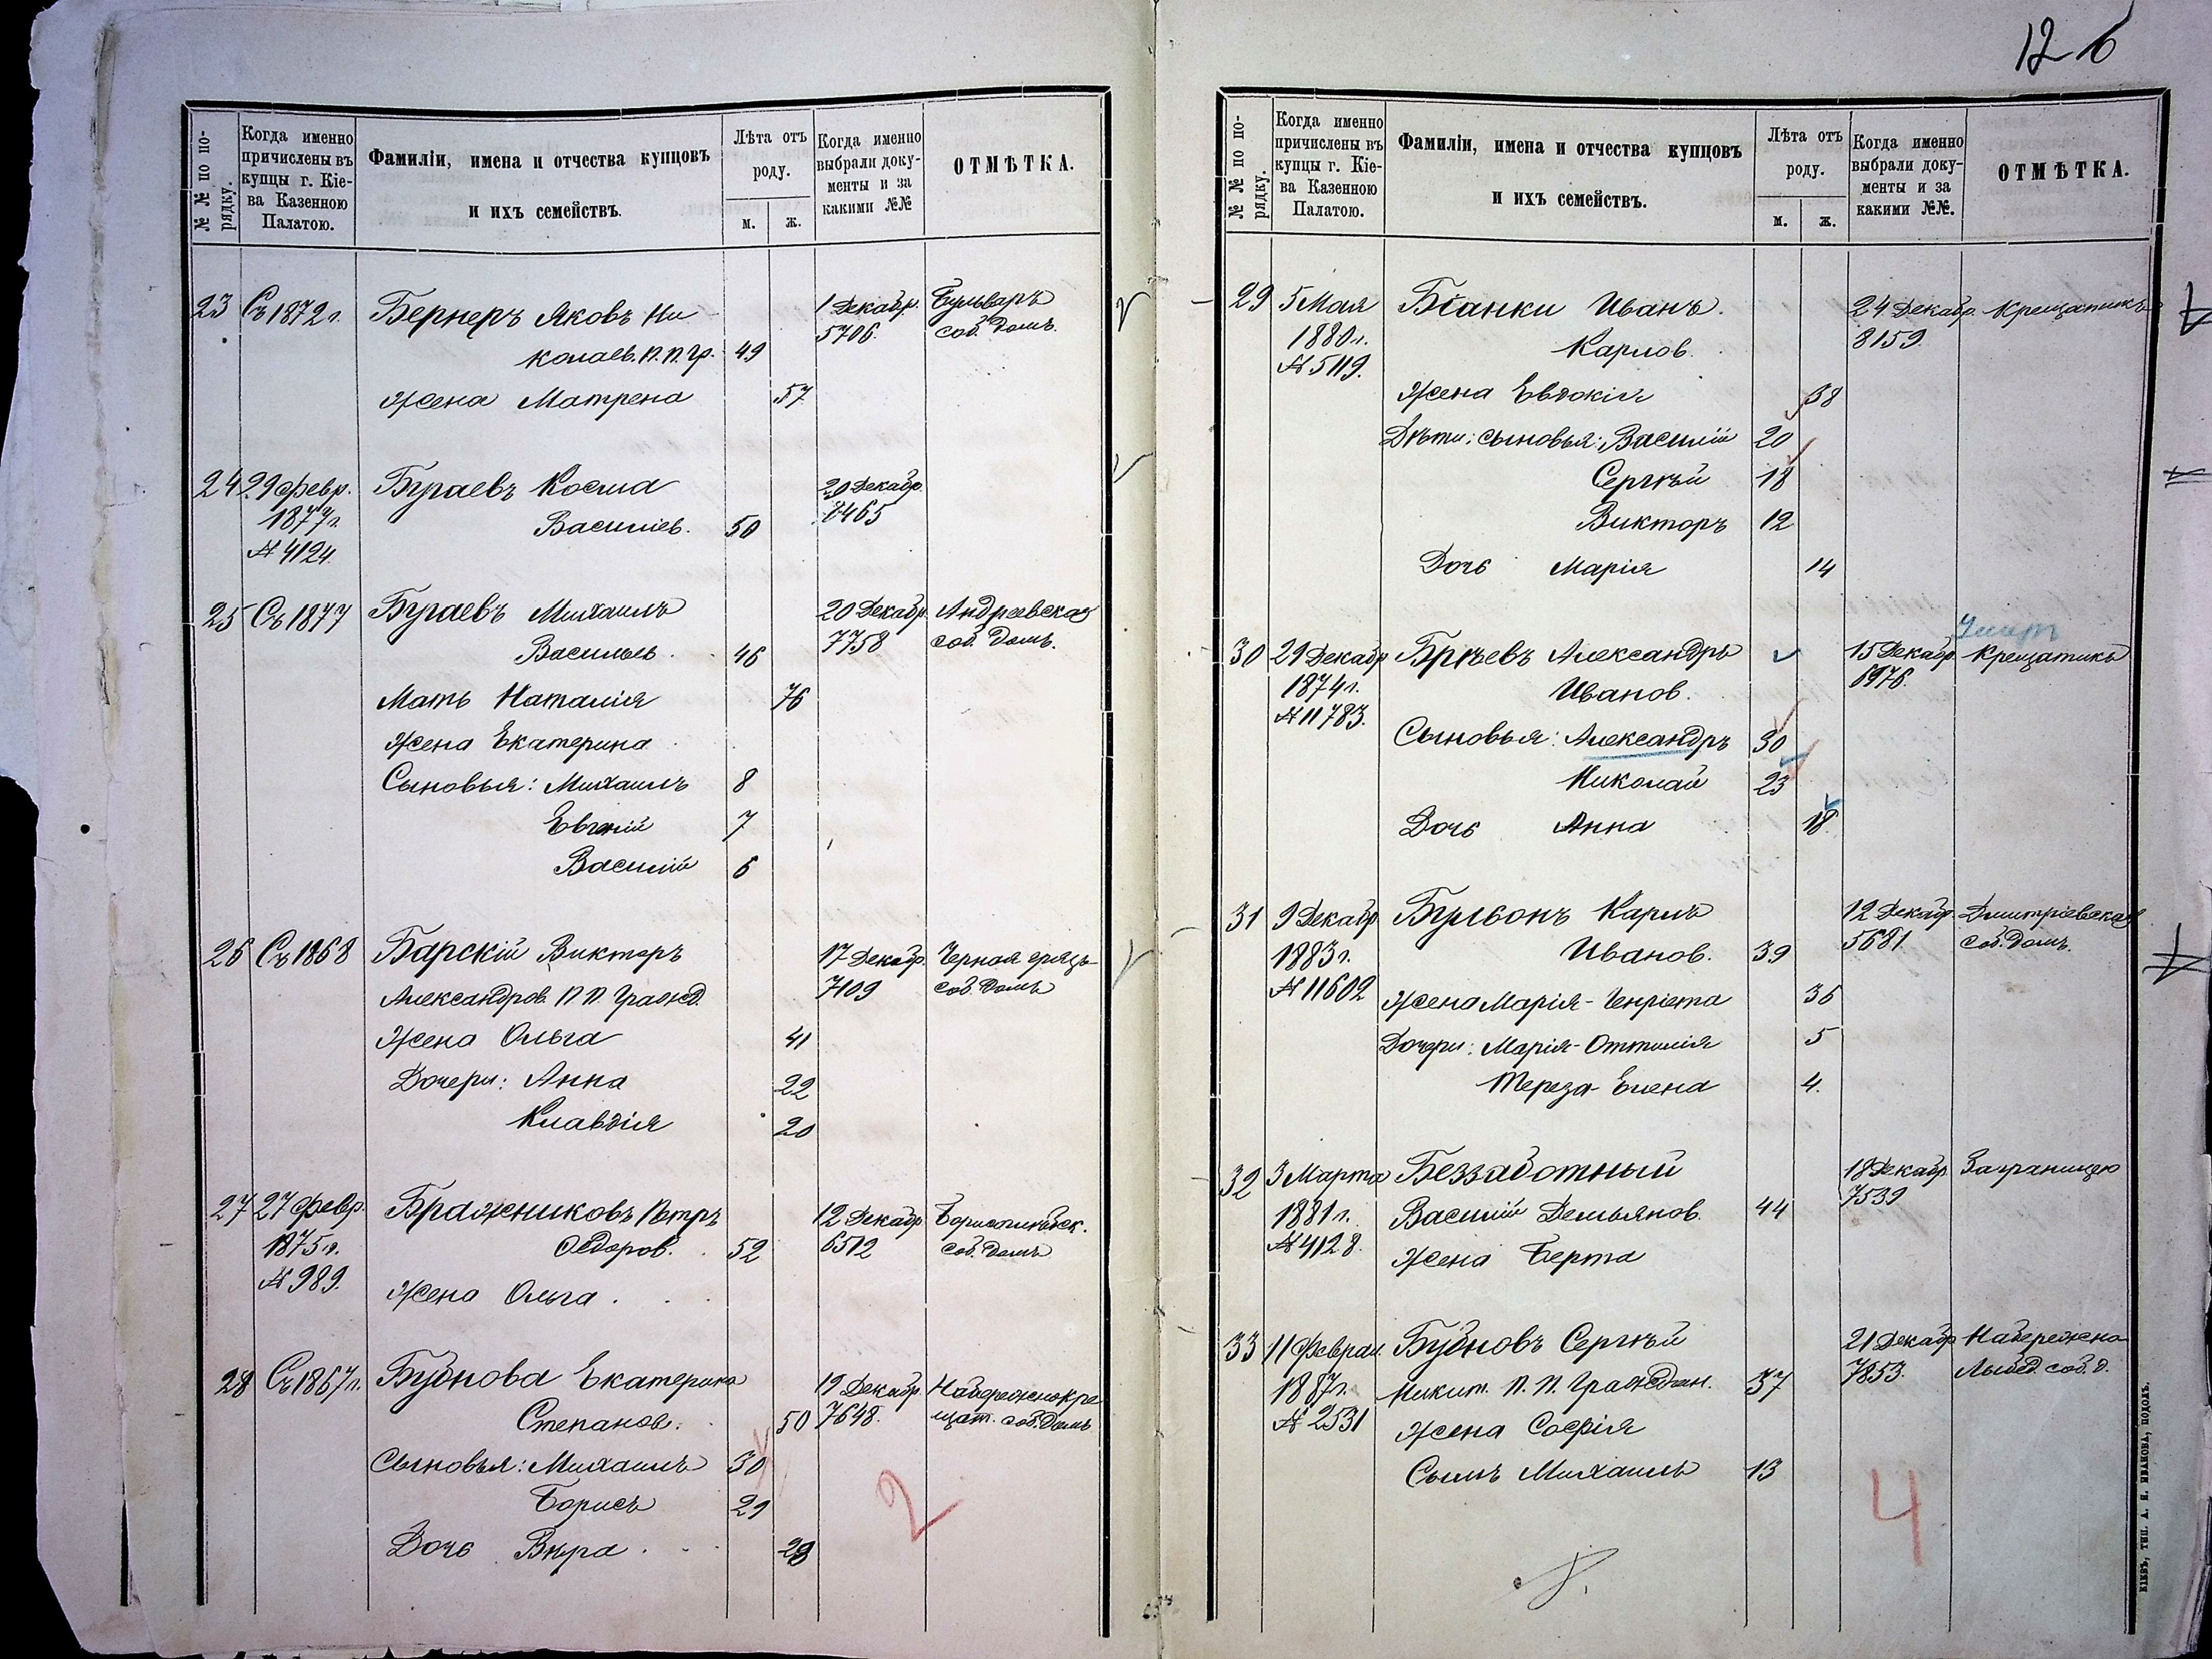 12 б
№ № по по-
рядку.
Когда именно
причислены въ
купцы г. Кіе-
ва Казенною
Палатою.
Фамиліи, имена и отчества купцовъ
и ихъ семействъ.
Лѣта отъ
роду.
м. ж.
Когда именно
выбрали доку-
менты и за
какими №№
ОТМѢТКА.
23 Съ 1872 г. Бернеръ Яковъ Ни- 1 Декабр. Бульваръ
колаев. П. П. Гр. 49 5706. соб. домъ.
Жена Матрена 57
24 29 Февр. Бугаевъ Косма 20 Декабр.
1877 г. Василіев. 50 8465
№ 4124.
25 Съ 1877 Бугаевъ Михаилъ 20 Декабр. Андреевская
Васильев. 46 7758 соб. домъ.
Мать Наталія 76
Жена Екатерина
Сыновья: Михаилъ 8
Евгеній 7
Василій 6
26 Съ 1868 Барскій Викторъ 17 Декабр. Черная грязь
Александров. П. П. Гражд. 7109 соб. домъ
Жена Ольга 41
Дочери: Анна 22
Клавдія 20
27 27 Февр. Бражниковъ Петръ 12 Декабр. Борисоглѣбск.
1875 г. Ѳедоров. 52 6512 соб. домъ
№ 989.
Жена Ольга
28 Съ 1867 г. Бубнова Екатерина 19 Декабр. Набережнокре-
Степанов. 50 7648. щат. соб. домъ
Сыновья: Михаилъ 30
Борисъ 29
Дочь Вѣра 28
2
№ № по по-
рядку.
Когда именно
причислены въ
купцы г. Кіе-
ва Казенною
Палатою.
Фамиліи, имена и отчества купцовъ
и ихъ семействъ.
Лѣта отъ
роду.
м. ж.
Когда именно
выбрали доку-
менты и за
какими №№.
ОТМѢТКА.
29 5 Мая Біанки Иванъ 24 Декабр. Крещатикъ
1880 г. Карлов. 8159.
№ 5119.
Жена Евдокія 38
Дѣти: сыновья: Василій 20
Сергѣй 18
Викторъ 12
Дочь Марія 14
30 29 Декабр. Брѣевъ Александръ 15 Декабр. Крещатикъ
1874 г. Иванов. 6976.
№ 11783.
Сыновья: Александръ 30
Николай 23
Дочь Анна 18
31 9 Декабр. Бульонъ Карлъ 12 Декабр. Дмитріевская
1883 г. Иванов. 39 5681. соб. домъ.
№ 11602 Жена Марія-Генріета 36
Дочери: Марія-Оттилія 5
Тереза-Елена 4.
32 3 Марта Беззаботный 18 Декабр. Заграницею
1881 г. Василій Демьянов. 44 7539
№ 4128. Жена Берта
33 11 Феврал. Бубновъ Сергѣй 21 Декабр. Набережно-
1887 г. Никит. П. П. Граждан. 37 7853. Лыбед. соб. д.
№ 2531 Жена Софія
Сынъ Михаилъ 13
4
КІЕВЪ, ТИП. А. Н. ИВАНОВА, ПОДОЛЪ.